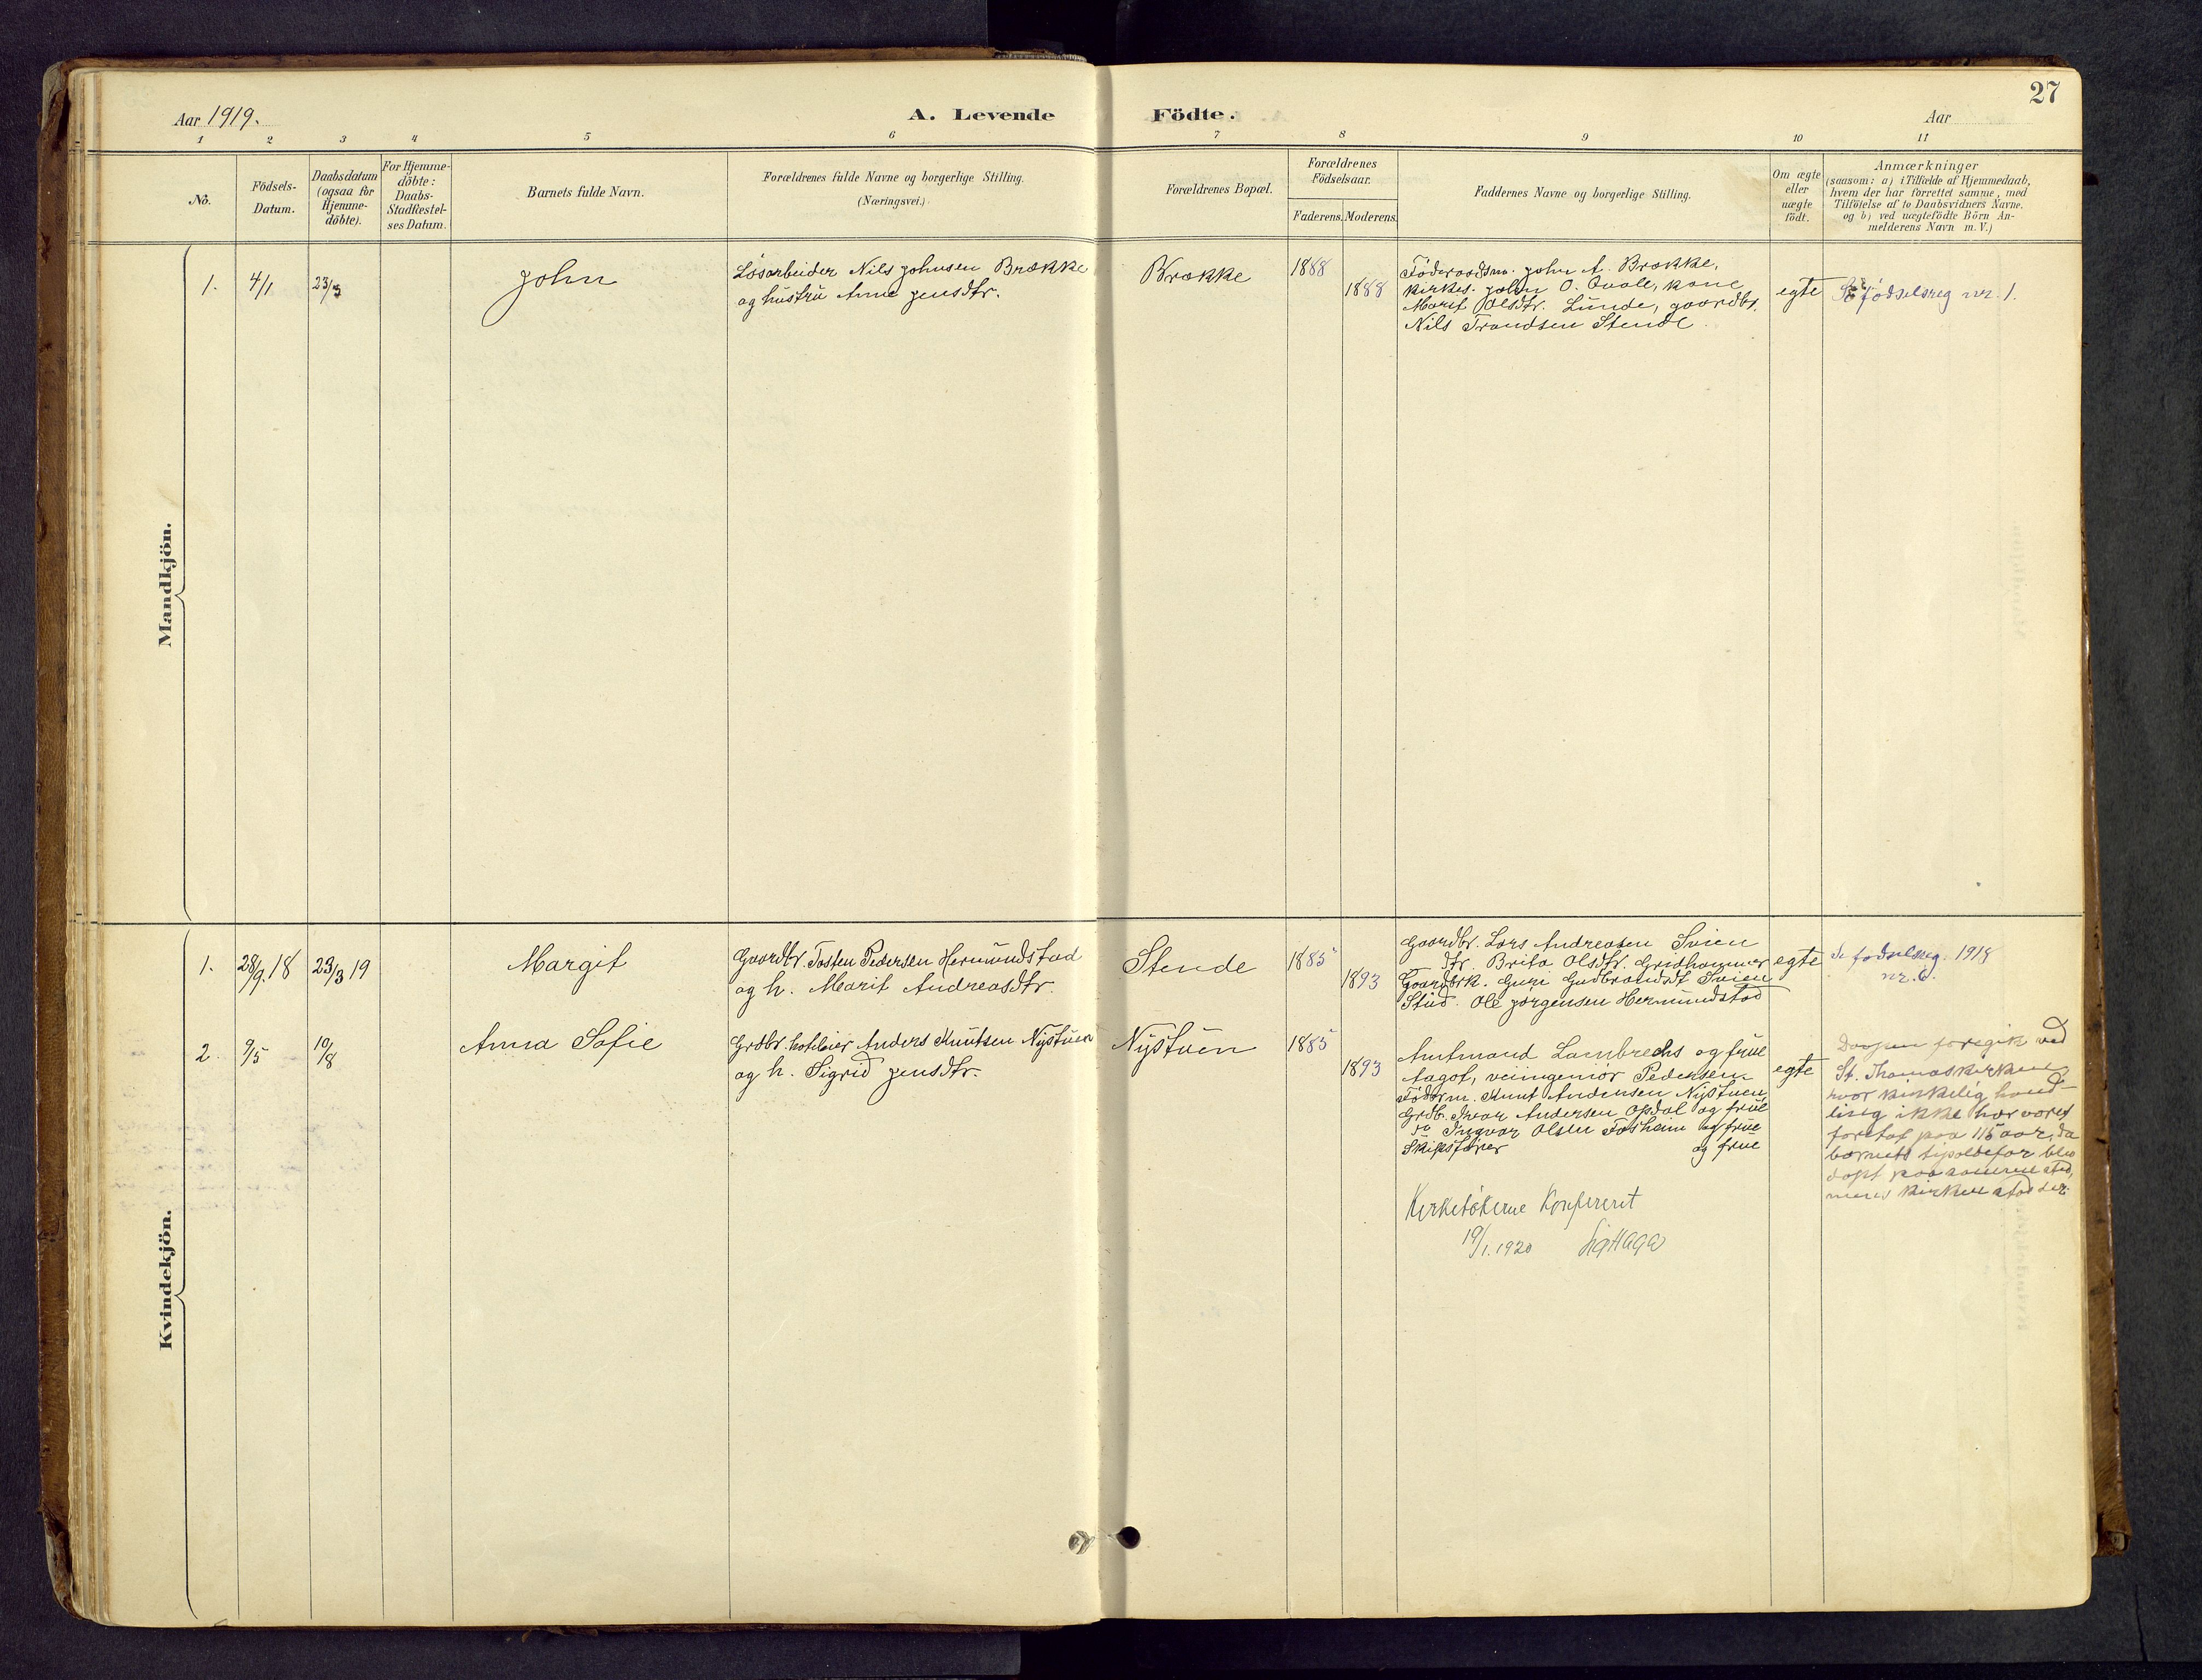 27
Aar 1919.
A. Levende
Födte.
Aar
1 2 3 4 5 6 7 8 9 10 11
No.
Födsels-
Datum.
Daabsdatum
(ogsaa for
Hjemme-
döbte).
For Hjemme-
döbte:
Daabs-
Stadfæstel-
ses Datum.
Barnets fulde Navn.
Forældrenes fulde Navne og borgerlige Stilling.
(Næringsvei.)
Forældrenes Bopæl.
Forældrenes
Födselsaar.
Faderens. Moderens.
Faddernes Navne og borgerlige Stilling.
Om ægte
eller
uægte
födt.
Anmærkninger
(saasom: a) i Tilfælde af Hjemmedaab,
hvem der har forrettet samme, med
Tilföielse af to Daabsvidners Navne,
og b) ved uægtefödte Börn An-
melderens Navn m. V.)
Mandkjön.
1.
4/1
23/3
John
Løsarbeider Nils Johnsen Brække
og hustru Anne Jensdtr.
Brække
1888
1888
Föderaadsm. John A. Brække,
Kirkes. John O. Qvale, kone
Marit Olsdtr. Lunde, gaardbr.
Nils Trondsen Stende.
egte
fødselsreg nr. 1.
Kvindekjön.
1.
28/9.18
23/3 19
Margit
Gaardbr. Tosten Pedersen Hermundstad
og h. Marit Andreasdtr.
Stende
1885
1893
Gaardbr. Lars Andreasen Svien
Dtr. Brita Olsdtr. Gridhammer
Gaardbrk. Guri Gudbrandsdt Svien
Stud. Ole Jørgensen Hermundstad
egte
Se fødselsreg. 1918
nr. 6.
2.
9/5
10/8
Anna Sofie
Grdbr. hoteleier Anders Knutsen Nystuen
og h. Sigrid Jensdtr.
Nystuen
1885
1893
Amtmand Lambrechs og frue
Aagot, veiingeniør Pedersen
Föderm. Knut Andersen Nystuen,
Grdb. Ivar Andersen Opdal og frue
Ingvar Olsen Fosheim og frue
Skipsfører og frue
egte
Daapen foregik ved
St. Thomaskirken
hvor kirkelig hand-
ling ikke har været
foretat paa 115 aar, da
barnets tipoldefar blev
døpt paa samme sted,
mens kirken stod der.
Kirkebøkerne Konfereret
19/1.1920